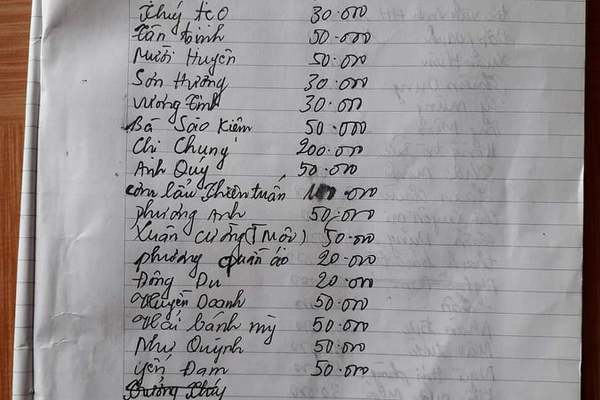 Thuý teo 30.000
Tân Đinh 50.000
Mười Huyên 50.000
Sơn Hương 30.000
Vương Tình 30.000
Bá Sáo Kiêm 50.000
Chi Chung 200.000
Anh Quý 50.000
Cơm lẩu Thiên tuấn .000
phương Anh 50.000
Xuân Cường ( ) 50.000
phương quần áo 20.000
Đông Du 20.000
Huyền Doanh 50.000
Hải bánh mỳ 50.000
Như Quỳnh 50.000
yến Đam 50.000